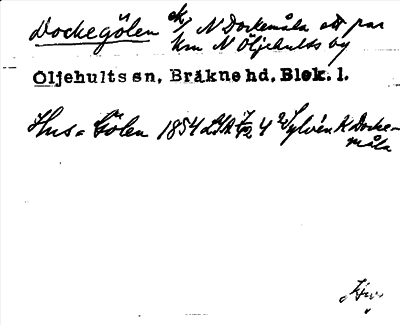 Dockegölen ek, N Dockemåla ett par
km N Öljehults by
Öljehults sn, Bräkne hd, Blek. l.
Hus-Gölen 1854 LSA 4 Sylvén K Docke-
måla